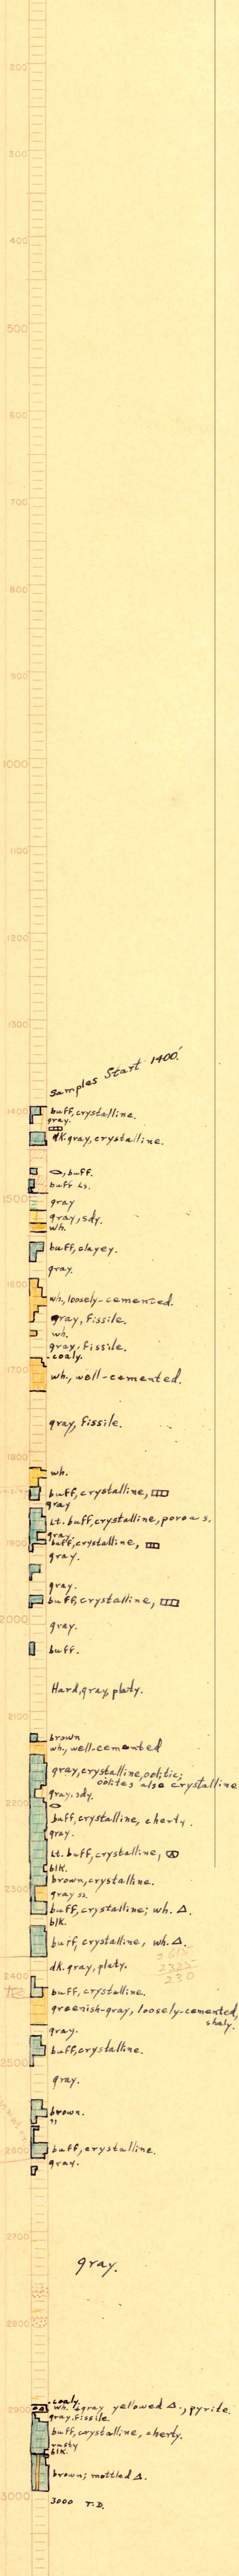 200
300
400
500
600
700
800
900
1000
1100
1200
1300
Samples Start 1400'
1400
buff, crystalline.
gray.
dk. gray, crystalline.
, buff.
buff Ls.
1500
gray
gray, sdy.
wh.
buff, clayey.
gray.
1600
wh., loosely-cemented.
gray, Fissile.
wh.
gray, fissile.
coaly.
1700
wh., well-cemented.
gray, fissile.
1800
wh.
buff, crystalline,
gray
Lt. buff, crystalline, porous.
gray.
1900
buff, crystalline,
gray.
gray.
buff, crystalline,
2000
gray.
buff.
Hard, gray, platy.
2100
brown
wh., well-cemented
gray, crystalline, oolitic;
oolites also crystalline
gray, sdy.
2200
buff, crystalline, cherty.
gray.
Lt. buff, crystalline,
blk.
brown, crystalline.
2300
gray ss.
buff, crystalline; wh. Δ.
blk.
buff, crystalline, wh. Δ.
dk. gray, platy.
2325
230
2400
buff, crystalline.
greenish-gray, loosely-cemented,
shaly.
gray.
buff, crystalline.
2500
gray.
brown.
"
2600
buff, crystalline.
gray.
2700
gray.
2800
coaly.
2900
wh. & gray yellowed Δ., pyrite.
gray, fissile.
buff, crystalline, cherty.
rusty
blk.
brown; mottled Δ.
3000
3000 T.D.